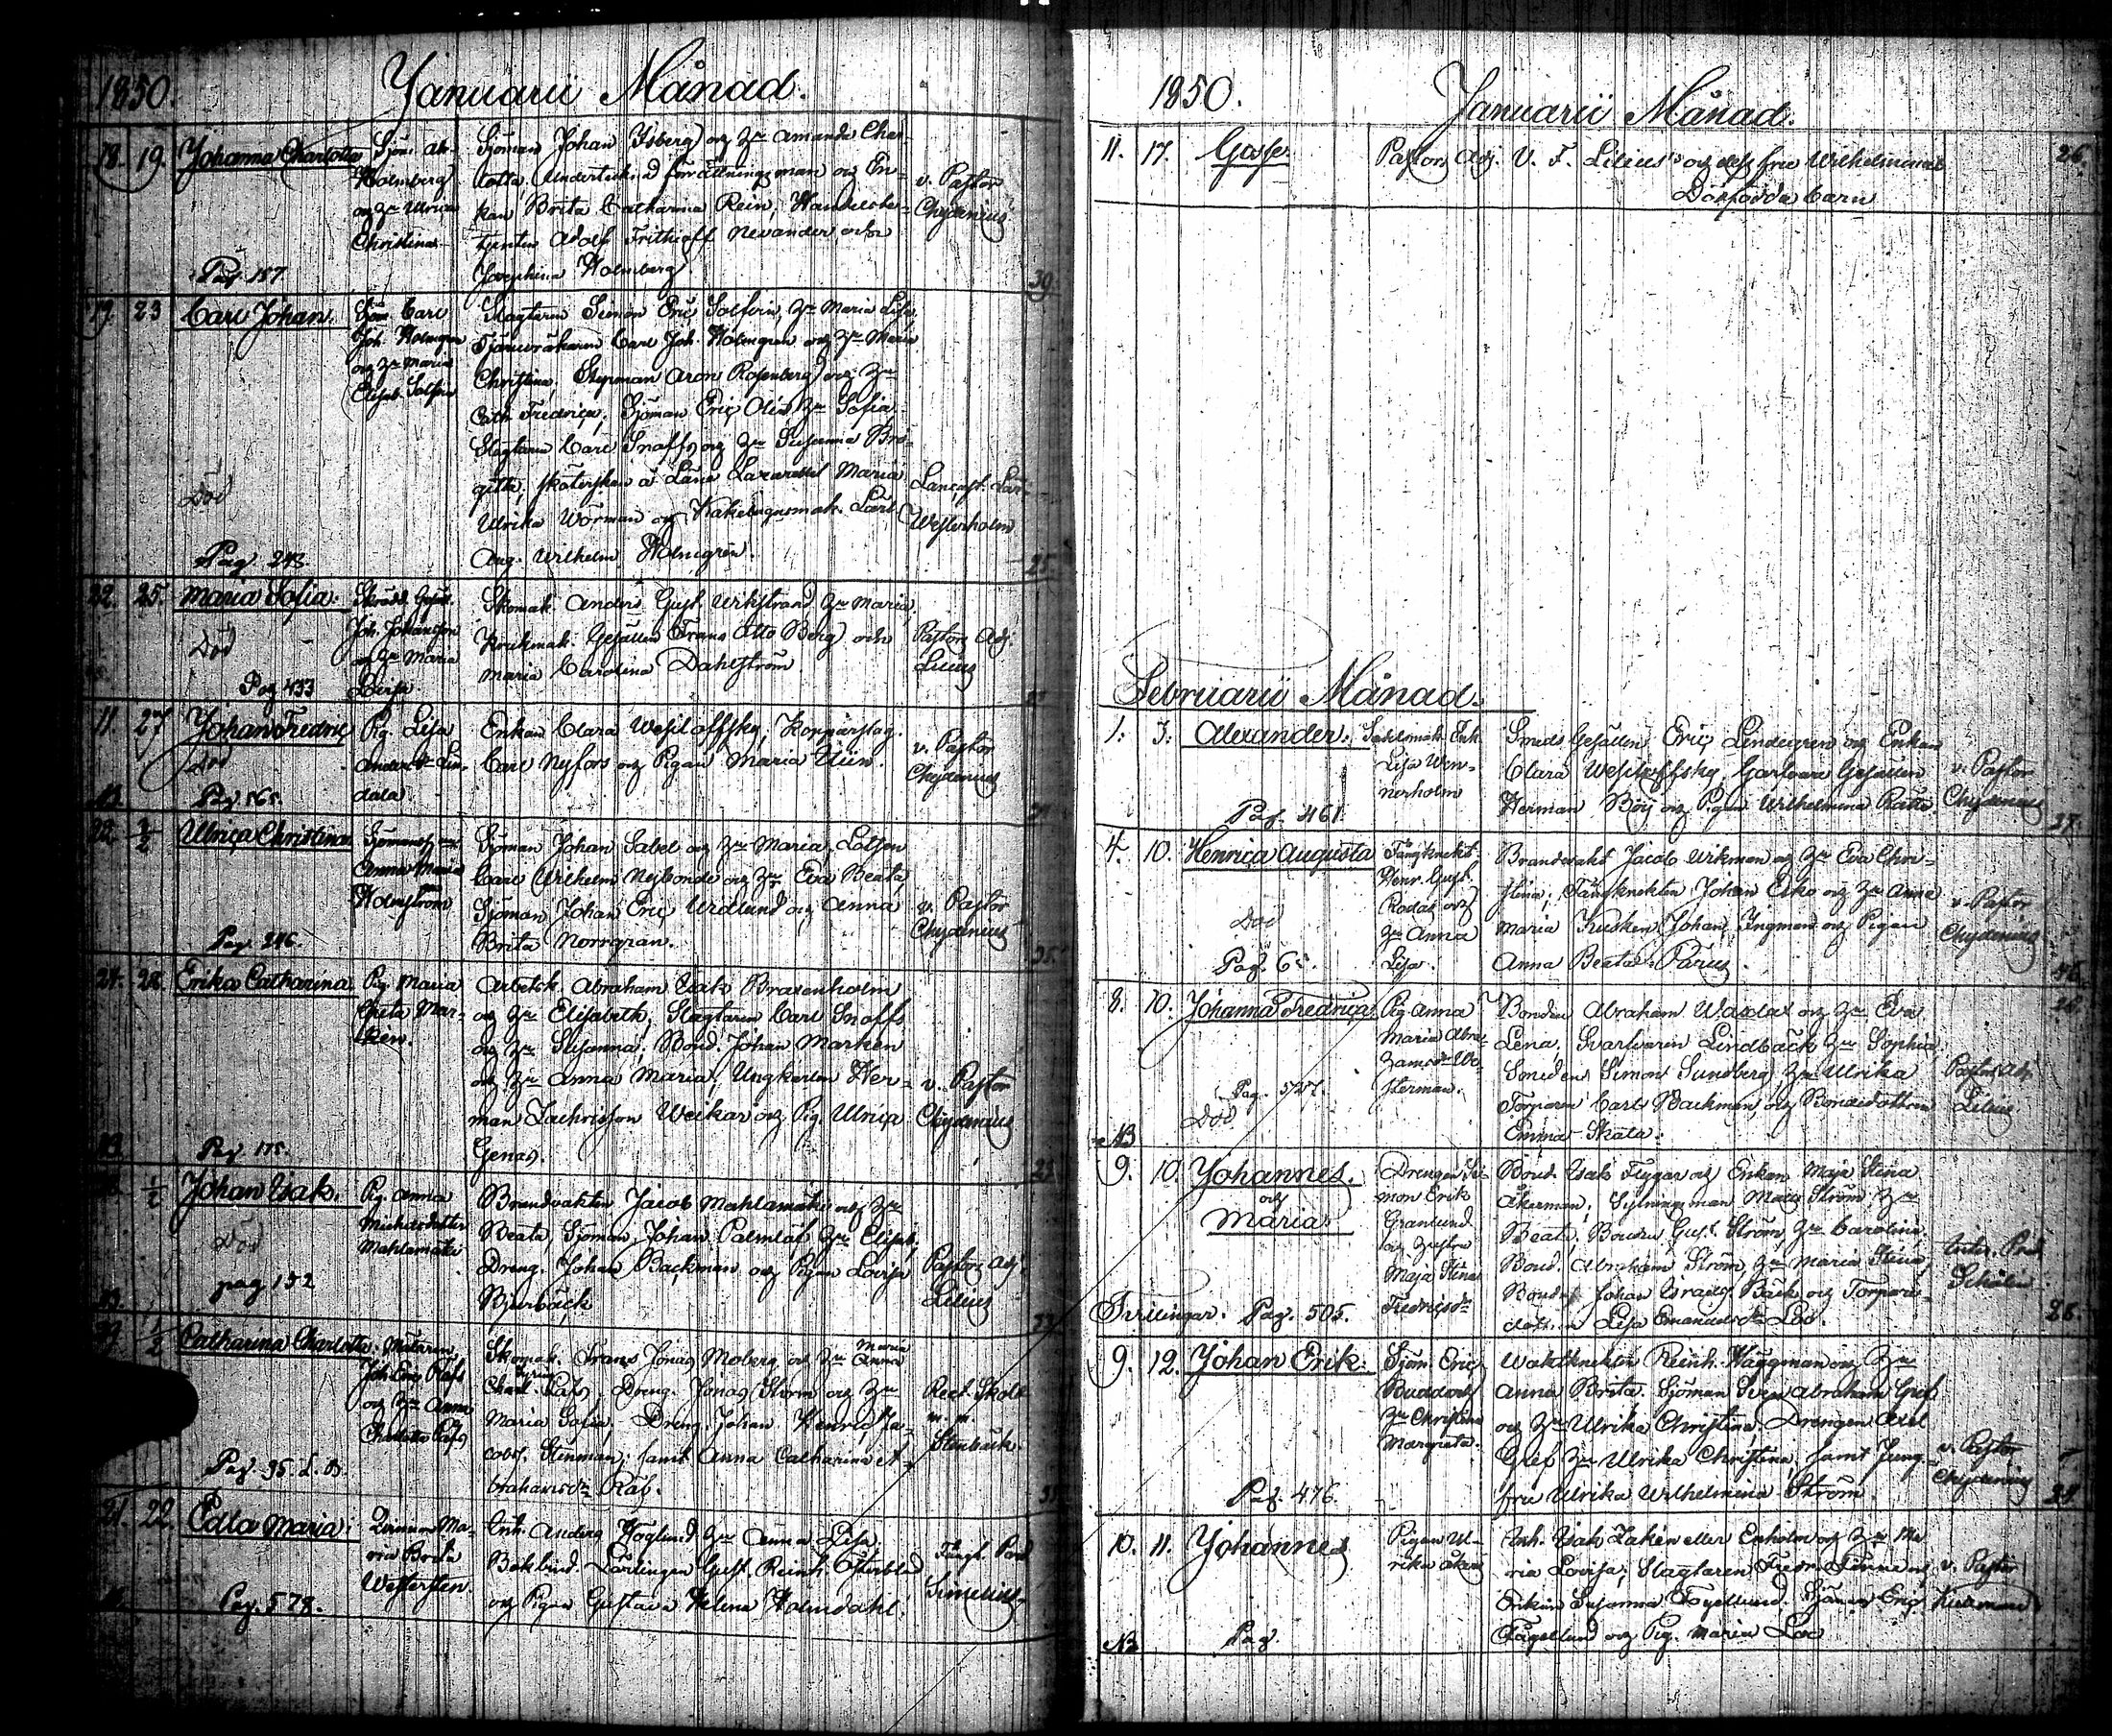 1850. Januarii Månad.
18. 19. Johanna Charlotta
Holmberg
og Hu Ulrica
Christina
Pag. 157
Sjöman Johan Isberg og Hu Amanda Char-
lotta. Undertecknad förrättningsman og En-
kan Brita Catharina Rein, Handelsbe-
tjenten Adolf Frithioff Nevander, och
Josephina Holmberg.
v. Pastor
Chydenius
39.
19. 23 Carl Johan.
Död
Pag. 243
Sjöm. Carl
Joh. Holmgren
og Hu Maria
Elisab. Solfvin
Slagtaren Simon Eric Solfvin, Hu Maria Lisa,
Carl Joh. Holmgren og Hu Maria
Christina, Styrman Aron Rosenberg og Hu
Cath. Fredrica, Sjöman Eric Olin Hu Sofia,
Slagtaren Carl Snaffs og Hu Susanna Bri-
gitta, sköterskan å Läne Lazarettet Maria
Ulrika Wörman og Kakelugnsmak. Lärl.
Aug. Wilhelm Holmgrén.
Westerholm
25
22. 25. Maria Sofia.
Död
Pag 433
Skrädd. Gesäll.
Joh. Johansson
og Hu Maria
Lovisa.
Skomak. Anders Gust. Wikstrand Hu Maria,
Krukmak. Gesällen Frans Otto Berg och
Maria Carolina Dahlström.
Pastors Adj.
Lilius
11. 27 Johan Fredric
Död
Pag 565.
Pig. Lisa
Anders dr Lin-
dala
Enkan Clara Wesiloffsky, Kopparslag.
Carl Nyfors og Pigan Maria Niin.
v. Pastor
Chydenius
22. 2/2 Ulrica Christina
Pag. 246.
Anna Maria
Holmström
Sjöman Johan Sabel og Hu Maria, Lotsen
Carl Wilhelm Nybonde og Hu Eva Beata,
Sjöman Johan Eric Widlund og Anna
Brita Norrgran.
v. Pastor
Chydenius
35.
24. 28. Erika Catharina
Pag. 175.
Pig. Maria
Greta Mar-
ken.
Arbetsk. Abraham Isak Braxenholm
og Hu Elisabeth, Slagtaren Carl Snaffs
og Hu Susanna, Bond. Johan Marken
og Hu Anna Maria, Ungkarlen Her-
man Zachrisson Weikar og Pig. Ulrica
Genas.
v. Pastor
Chydenius
23.
1/2 Johan Isak.
Död
pag 152
Pig. Anna
Michelsdotter
Mahlamäki
Brandvakten Jacob Mahlamäki og Hu
Beata, Sjöman Johan Palmlöf Hu Elisab.,
Dreng. Johan Backman og Pigan Lovisa
Bjurbäck
Pastors Adj.
Lilius
1/2 Catharina Charlotta.
Pag. 95. L. B.
Målaren
Joh. Eric Räfs
og Hu Anna
Charlotta Räfs
Skomak. Frans Jonas Moberg og Hu Maria Anna
Dreng. Jonas Storm og Hu
Maria Sofia, Dreng. Johan Henric Ja-
cobs. Stenman, samt Anna Catharina A-
brahamsdr Räf.
Rect. Skolæ
Stenbäck.
21. 22. Edla Maria.
Pag. 578.
Qvinnan Ma-
ria Brita
Westersten
Enk. Anders Höglund Hu Anna Lisa,
Bokbind. Lärlingen Gust. Reinh. Österblad
og Pigan Gustava Helena Holmdahl.
Simelius
1850. Januarii Månad.
11. 17. Gosse
Pastors Adj. V. F. Lilius's og dess fru Wilhelminas
Dödfödda barn
26.
Februarii Månad.
1. 3. Alexander.
Pag. 461.
Sadelmak. Enk.
Lisa Wen-
nerholm
Smeds Gesällen Eric Lindegren og Enkan
Clara Wesiloffsky, Garfvare Gesällen
Herman Böij og Pigan Wilhelmina Rätts
v. Pastor
Chydenius
37.
4. 10. Henrica Augusta
Död
Pag. 65.
Fångknekt
Henr. Gust.
Rodas og
Hu Anna
Lisa.
Brandvakt Jacob Wikman og Hu Eva Chri-
stina; Fångknekten Johan Esko og Hu Anna
Maria Kusken Johan Ingman og Pigan
Anna Beata Parus.
v. Pastor
Chydenius
46.
8. 10. Johanna Fredrica
Pag. 527.
Död
NB
Pig. Anna
Maria Abra-
hams dr We-
sterman.
Bonden Abraham Wadax og Hu Eva
Lena, Svarfvaren Lindbäck Hu Sophia,
Smeden Simon Sundberg Hu Ulrika
Torparen Carl Backman og Bondedottren
Emma Skata.
Pastors Adj.
Lilius
28.
9. 10. Johannes.
og
Maria
Tvillingar. Pag. 505.
Drengen Si-
mon Erik
Granlund
og Hustru
Maja Stina
Fredrics dr
Bond. Isak Flygar og Enkan Maja Stina
Åkerman; Sytningsman Matts Ström Hu
Beata, Bonden Gust. Ström Hu Carolina,
Bond. Abraham Ström, Hu Maria Stina,
Bondes. Johan Israels Bäck og Torpare-
dottren Lisa Emanuelsdr Loo.
28.
9. 12. Johan Erik.
Pag. 476
Sjöm. Eric
Buddas og
Hu Christina
Margreta.
Waktknekten Reinh. Häggman og Hu
Anna Brita. Sjöman Sven Abraham Gref
og Hu Ulrika Christina. Drengen Axel
Gref Hu Ulrika Christina, samt Jung-
fru Ulrika Wilhelmina Ström.
v. Pastor
Chydenius
10. 11. Johannes
Pag.
NB
Pigan Ul-
rika Åkers
Inh. Isak Zakén eller Enholm og Hu Ma
ria Lovisa, Slagtaren Fredr. Finne og
Enkan Susanna Fogellund. Sjöman Eric
Fågellund og Pig. Maria Loo
v. Pastor